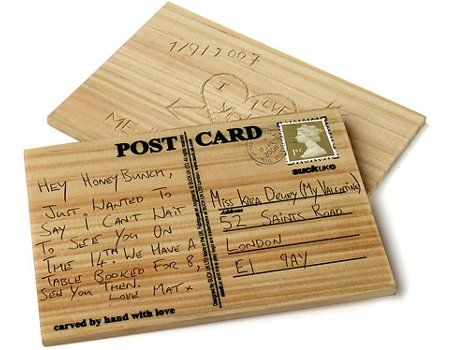 1/9/2007
I
LOVE
YOU
ME
POST CARD
1ST
SUCKUK
HEY HONEYBUNCH,
JUST WANTED TO
SAY I CAN'T WAIT
TO SEE YOU ON
THE 14TH. WE HAVE A
TABLE BOOKED FOR 8,
SEE YOU THEN.
LOVE MAT x
MISS KYRA DEWEY (MY VALENTINE)
Address
52 SAINTS ROAD
LONDON
E1 9AY
carved by hand with love